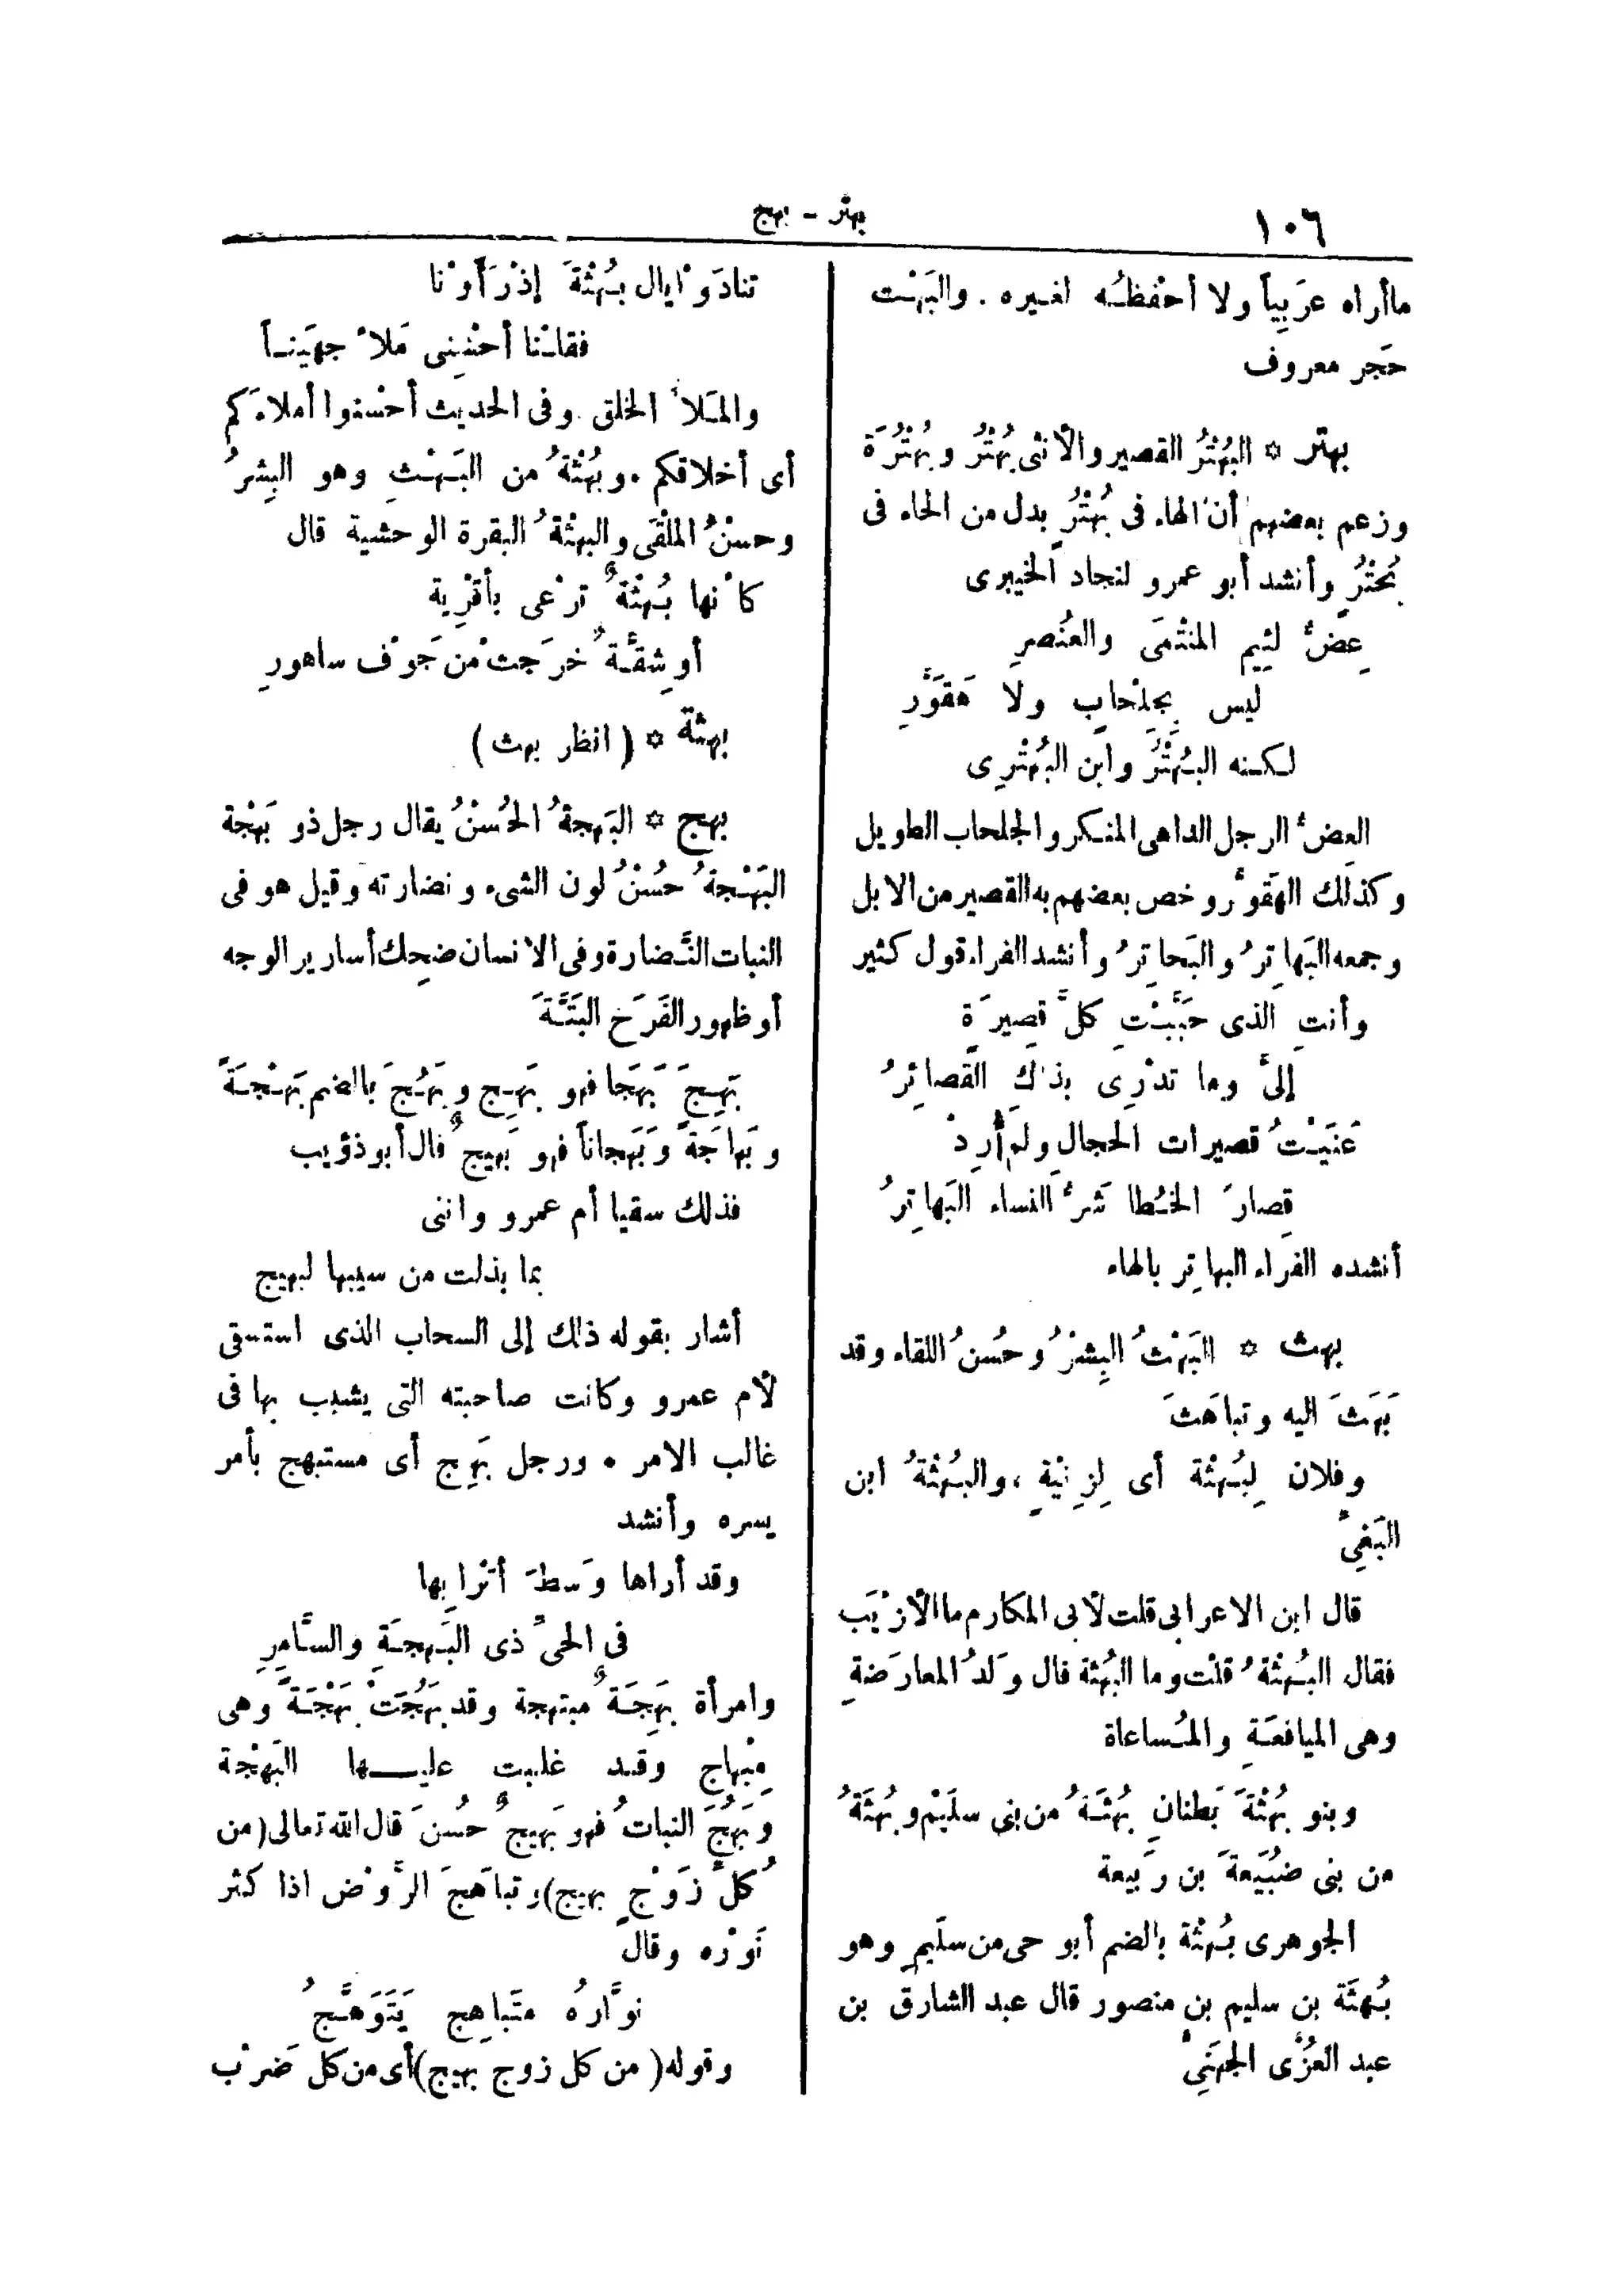 ١٠٦
بهتر - بهج
ماأراه عرَبِياً ولا أحفظُه لغيره . والبَهْت
حَجر معروف
بهتر * البُهْتُرُ القصير والأنثى بُهْتُرُ و بُهْتُرَة
وزعم بعضهم أن الهاء فى بُهْتُرٍ بدل من الحاء فى
بُحْتُرٍ وأنشد أبو عمرو لنجاد الخيبرى
عِضٌّ لئيم المنتْمَى والعُنْصرِ
ليس بِجِلْحابٍ ولا هَقَوَّرِ
لكنه البُهْتُرُ وابن البُهْتُرِى
العضُّ الرجل الداهى المنكر والجلحاب الطويل
وكذلك الهَقوَّر وخص بعضهم به القصير من الابل
وجمعه البَهاتِرُ والبَحاتِرُ وأنشد الفراء قول كثير
وأنتِ الذى حَبَّبْتِ كلَّ قصيرَة
إلىَّ وما تدْرِى بذاكِ القَصائِرُ
عَنَيْتُ قصيرات الحجالِ ولم أُرِدْ
قِصارَ الخُطا شرُّ النساء البَهاتِرُ
أنشده الفراء البهاتِر بالهاء
بهث * البَهْثُ البِشْرُ وحُسنُ اللقاء وقد
بَهَثَ اليه وتباهَثَ
وفلان لِبُهْثَة أى لِزِنْيةٍ ، والبُهْثَةُ ابن
البَغِىّ
قال ابن الاعرابى قلت لأبى المكارم ماالأزْيَب
فقال البُهْثَةُ قلت وما البُهْثة قال وَلَدُ المعارَضةِ
وهى الميافعَةِ والمُساعاة
وبنو بُهْثَةَ بَطنانِ بُهْثَةُ من بنى سلَيْم وبُهْثَةُ
من بنى ضبُيَعةَ بن رَبيعة
الجوهرى بُهْثة بالضم أبو حى من سلَيم وهو
بُهثَة بن سليم بن منصور قال عبد الشارق بن
عبد العُزَّى الجُهَنِىّ
تنادَوْا يال بُهْثَةَ إذْ رَأَوْنا
فقلْنا أحْسِنِى مَلأً جهَينا
والمَلأُ الخلق وفى الحديث أحْسنوا أملاءَكم
أى أخلاقكم . وبُهْثةُ من البَهْثِ وهو البِشرُ
وحسنُ الملْقَى والبهْثةُ البقرة الوحشية قال
كأنها بُهْثةٌ ترْعى بأقْرِية
أو شِقَّةٌ خرَجتْ من جَوْف ساهورِ
بهثة * ( انظر بهث )
بهج * البَهجةُ الحُسنُ يقال رجل ذو بَهْجة
البَهْجةُ حسُنُ لون الشىء ونضارته وقيل هو فى
النبات النَّضارة وفى الانسان ضحِك أسارير الوجه
أو ظهور الفَرَح البَتَّةَ
بَهِجَ بَهَجا فهو بَهِج وبَهُجَ بالضم بَهْجَةً
وبَهاجَةً وبَهَجاناً فهو بَهيجٌ قال أبو ذؤيب
فذلك سقيا أم عمرو واننى
بما بذلت من سيبها لبهيج
أشار بقوله ذلك إلى السحاب الذى استسقى
لأم عمرو وكانت صاحبته التى يشبب بها فى
غالب الامر . ورجل بَهِج أى مستبهج بأمر
يسره وأنشد
وقد أراها وَسطَ أتْرابِها
فى الحىِّ ذى البَهجَةِ والسَّامِرِ
وامرأة بَهِجَةٌ مبتهجة وقد بَهُجَتْ بَهْجَةً وهى
مِبْهاج وقد غلبت عليها البَهْجة
وَبَهُجَ النباتُ فهو بَهيجٌ حسُنَ قال الله تعالى (من
كُلِّ زَوْجٍ بهيج) وتباهَجَ الرَّوْض اذا كثر
نَوْره وقال
نوَّارُهُ متَباهِج يَتَوَهَّجُ
وقوله ( من كل زوج بهيج)أى من كل ضرْب